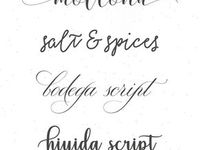 salt & spices
bodega script
hiyida script